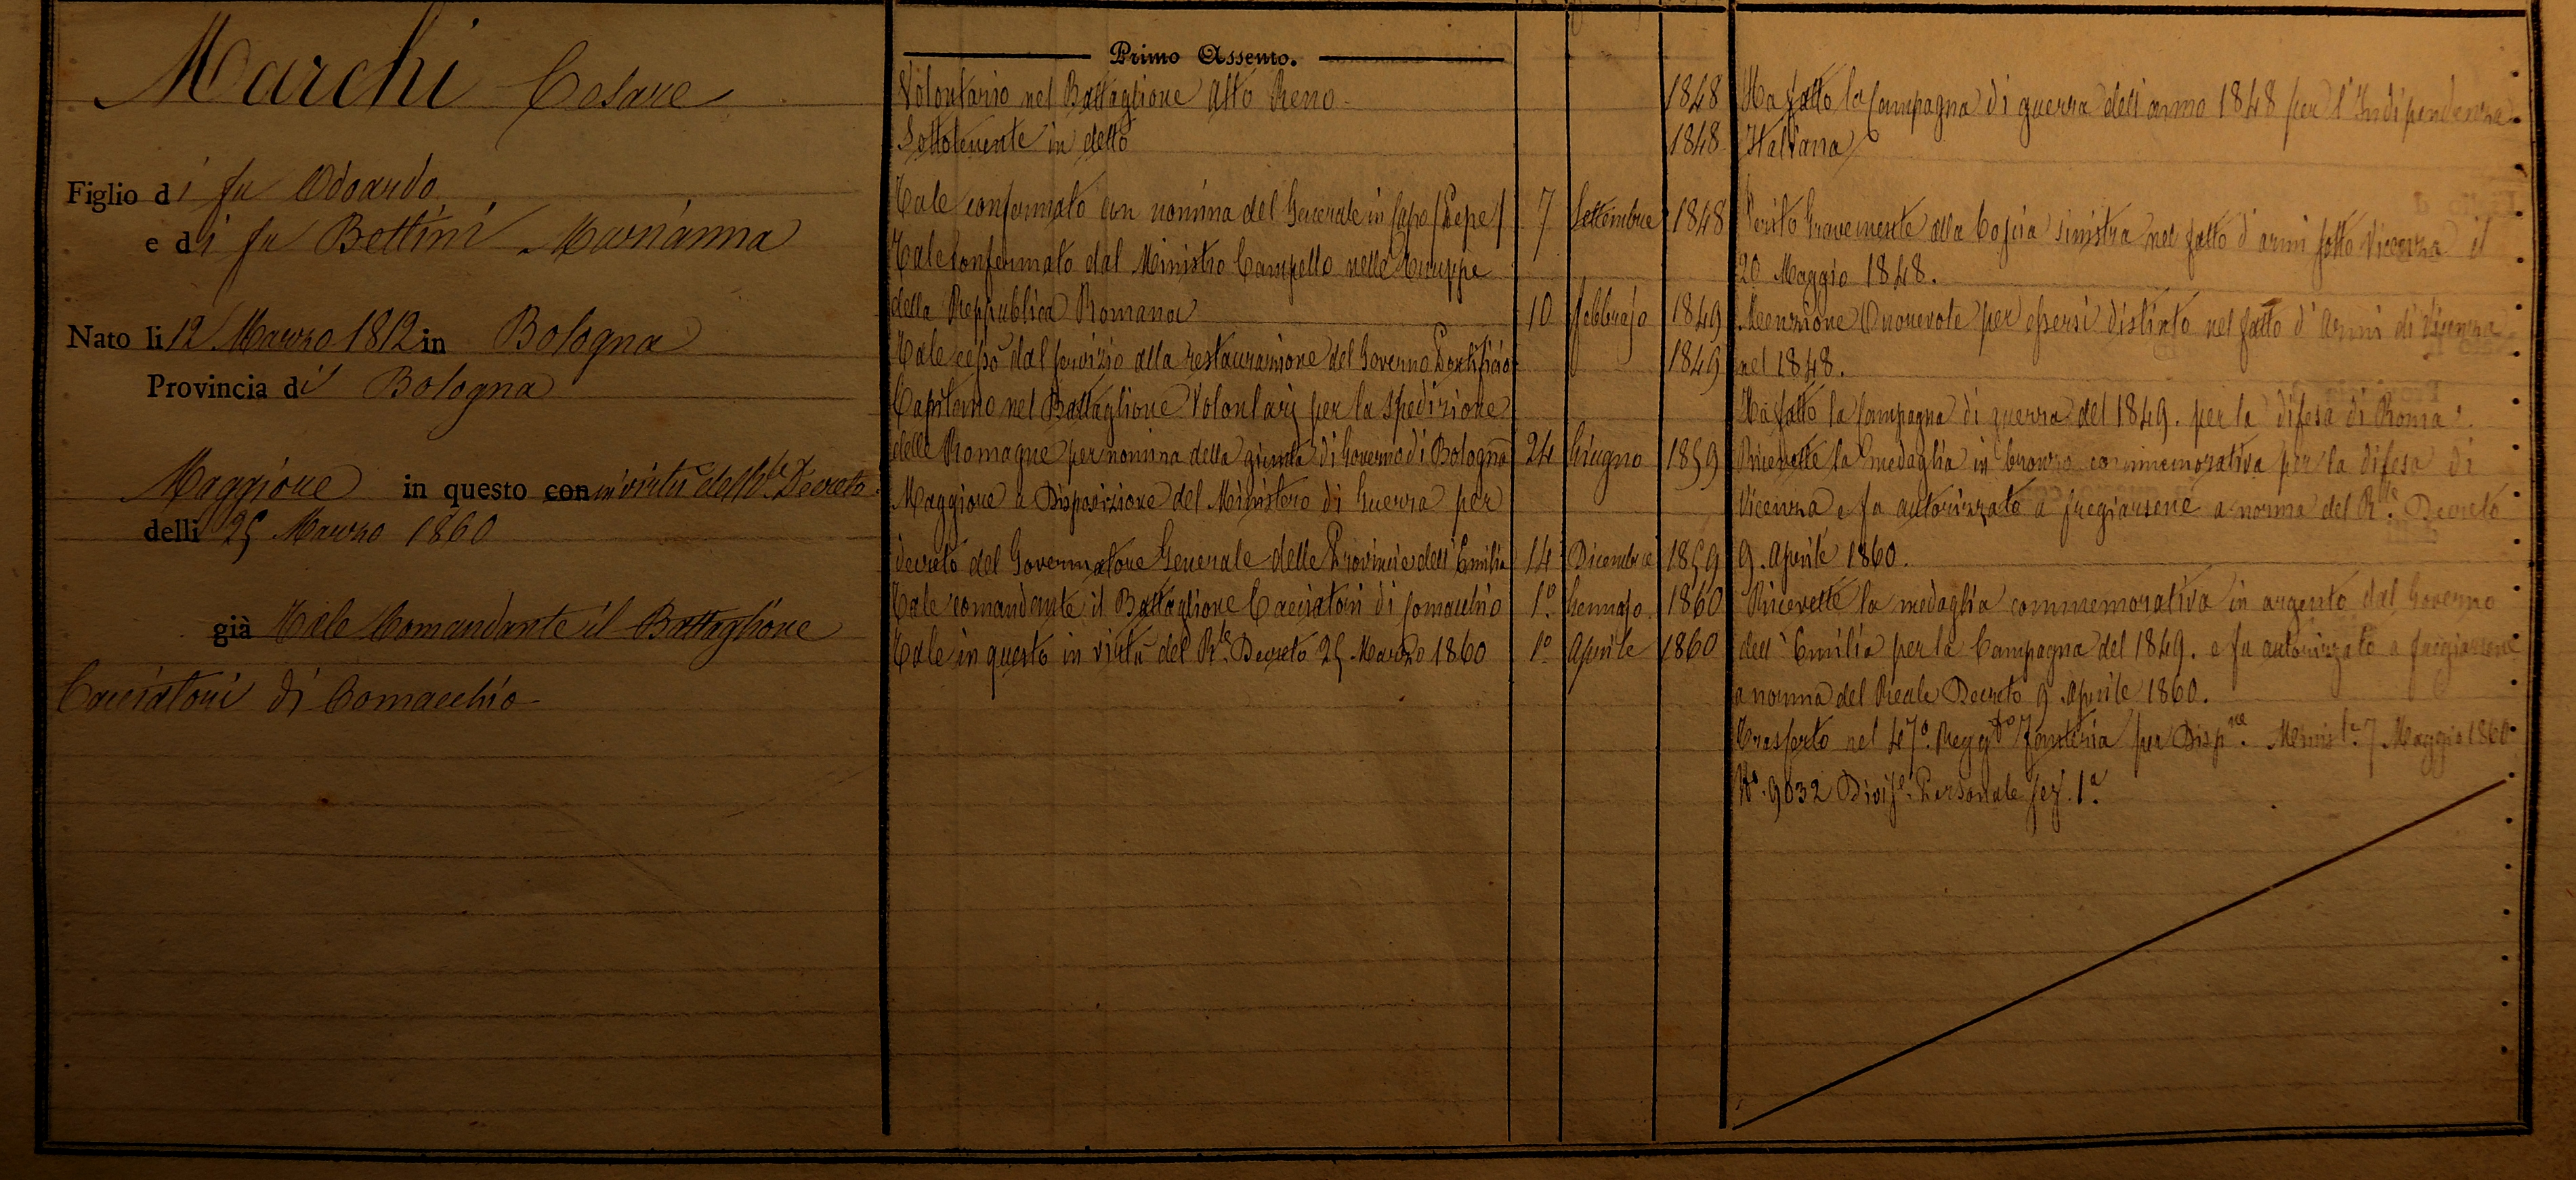 Marchi Cesare
Figlio di fu Odoardo
e di fu Bettini Marianna
Nato li 12 Marzo 1812 in Bologna
Provincia di Bologna
Maggiore in questo con in virtù del Rle Decreto
delli 25 Marzo 1860
già Tale Comandante il Battaglione
Cacciatori di Comacchio
Primo Assento.
Volontario nel Battaglione Alto Reno 1848
Sottotenente in detto 1848
Tale confermato con nomina del Generale in Capo (Pepe) 7 Settembre 1848
Tale confermato dal Ministro Campello nelle Truppe
della Reppublica Romana 10 Febbrajo 1849
Tale cessò dal servizio alla restaurazione del Governo Pontificio 1849
Capitano nel Battaglione Volontarj per la spedizione
delle Romagne per nomina della giunta di Governo di Bologna 24 Giugno 1859
Maggiore a Disposizione del Ministero di Guerra per
decreto del Governatore Generale delle Provincie dell'Emilia 14 Dicembre 1859
Tale comandante il Battaglione Cacciatori di Comacchio 1º Gennajo 1860
Tale in questo in virtù del Rle Decreto 25 Marzo 1860 1º Aprile 1860
Ha fatto la Campagna di guerra dell'anno 1848 per l'Indipendenza
Italiana
Ferito Gravemente alla Coscia sinistra nel fatto d'armi sotto Vicenza il
20 Maggio 1848.
Menzione Onorevole per essersi distinto nel fatto d'Armi di Vicenza
nel 1848.
Ha fatto la Campagna di guerra del 1849. per la difesa di Roma.
Ricevette la medaglia in bronzo commemorativa per la difesa di
Vicenza e fu autorizzato a fregiarsene a norma del Rle. Decreto
9. Aprile 1860.
Ricevette la medaglia commemorativa in argento dal Governo
dell'Emilia per la Campagna del 1849. e fu autorizzato a fregiarsene
a norma del Reale Decreto 9 Aprile 1860.
Trasferto nel 47º. Reggto Fanteria per Dispne. Minisle. 7 Maggio 1860
Nº. 9032 Divise. Personale Sez. 1ª